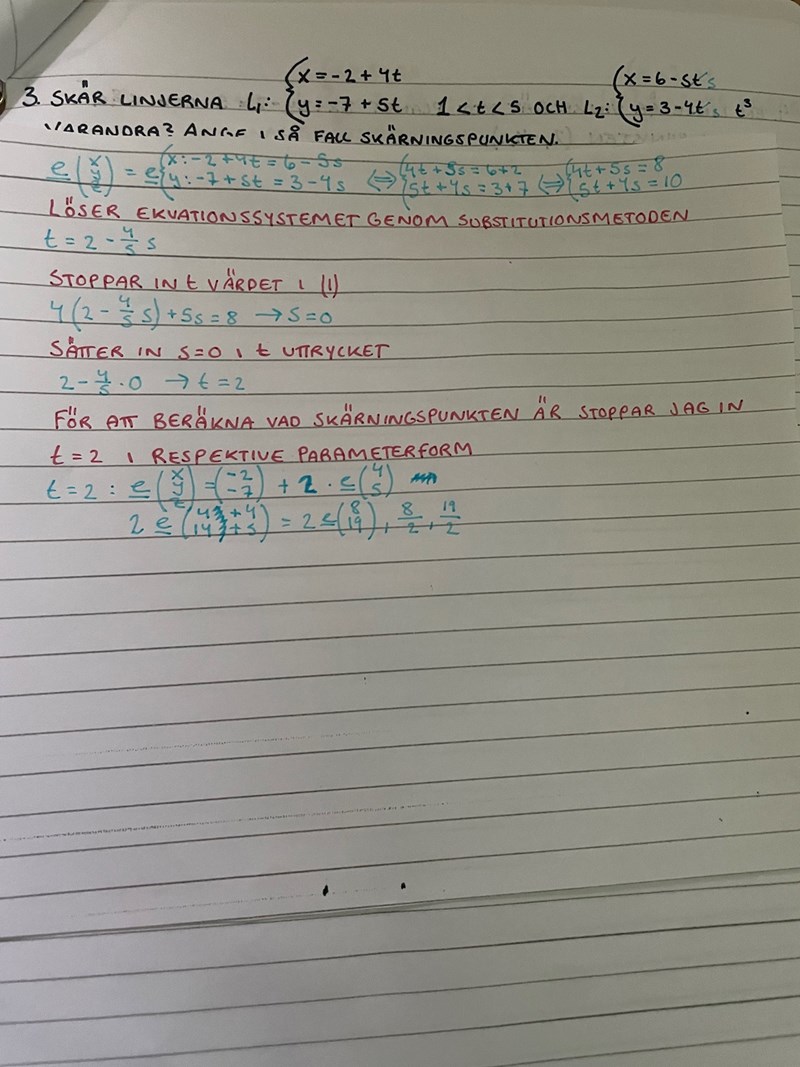 {x = -2 + 4t {x = 6 - 5t s
3. SKÄR LINJERNA L₁: {y = -7 + 5t 1 < t < 5 OCH L₂: {y = 3 - 4t s t³
VARANDRA? ANGE I SÅ FALL SKÄRNINGSPUNKTEN.
e(x y z) = e{x: -2 + 4t = 6 - 5s ⇔ {4t + 5s = 6 + 2 ⇔ {4t + 5s = 8
{y: -7 + 5t = 3 - 4s {5t + 4s = 3 + 7 {5t + 4s = 10
LÖSER EKVATIONSSYSTEMET GENOM SUBSTITUTIONSMETODEN
t = 2 - 4/5 s
STOPPAR IN t VÄRDET I (1)
4(2 - 4/5 s) + 5s = 8 → s = 0
SÄTTER IN s = 0 I t UTTRYCKET
2 - 4/5 · 0 → t = 2
FÖR ATT BERÄKNA VAD SKÄRNINGSPUNKTEN ÄR STOPPAR JAG IN
t = 2 I RESPEKTIVE PARAMETERFORM
t = 2 : e(x y z) = (-2 -7) + 2 · e(4 5)
2 e(4 + 4 14 + 5) = 2 e(8 19), 8/2, 19/2